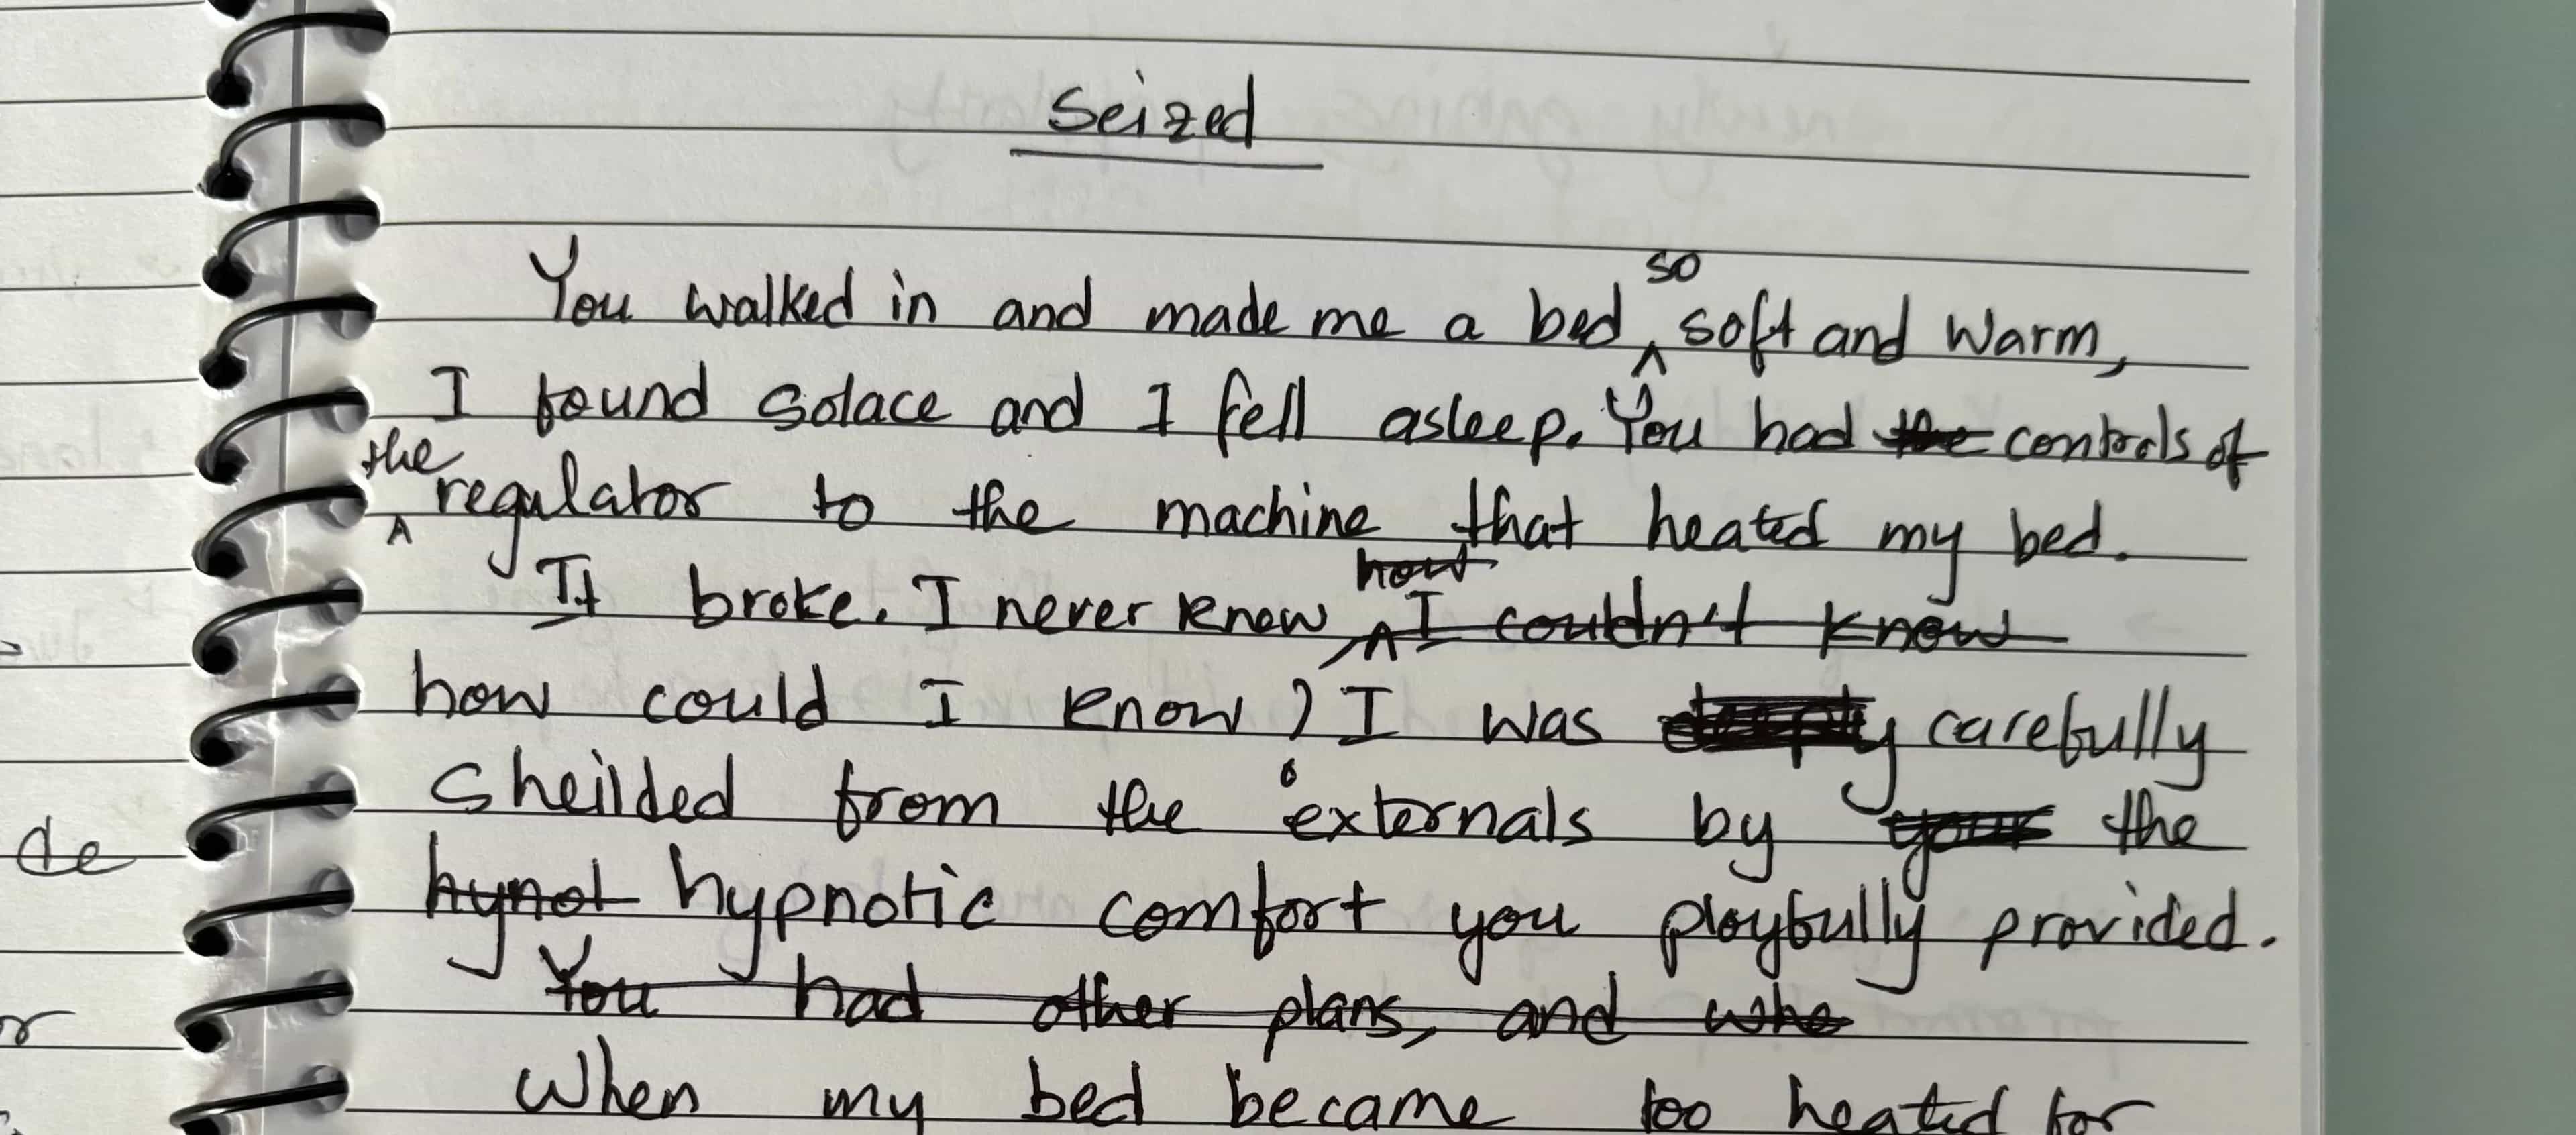 Seized
You walked in and made me a bed so soft and warm,
I found solace and I fell asleep. You had the controls of
the regulator to the machine that heated my bed.
It broke. I never knew how I couldn't know
how could I know? I was deeply carefully
sheilded from the externals by your the
hynot hypnotic comfort you playfully provided.
You had other plans, and who
When my bed became too heated for
de
r